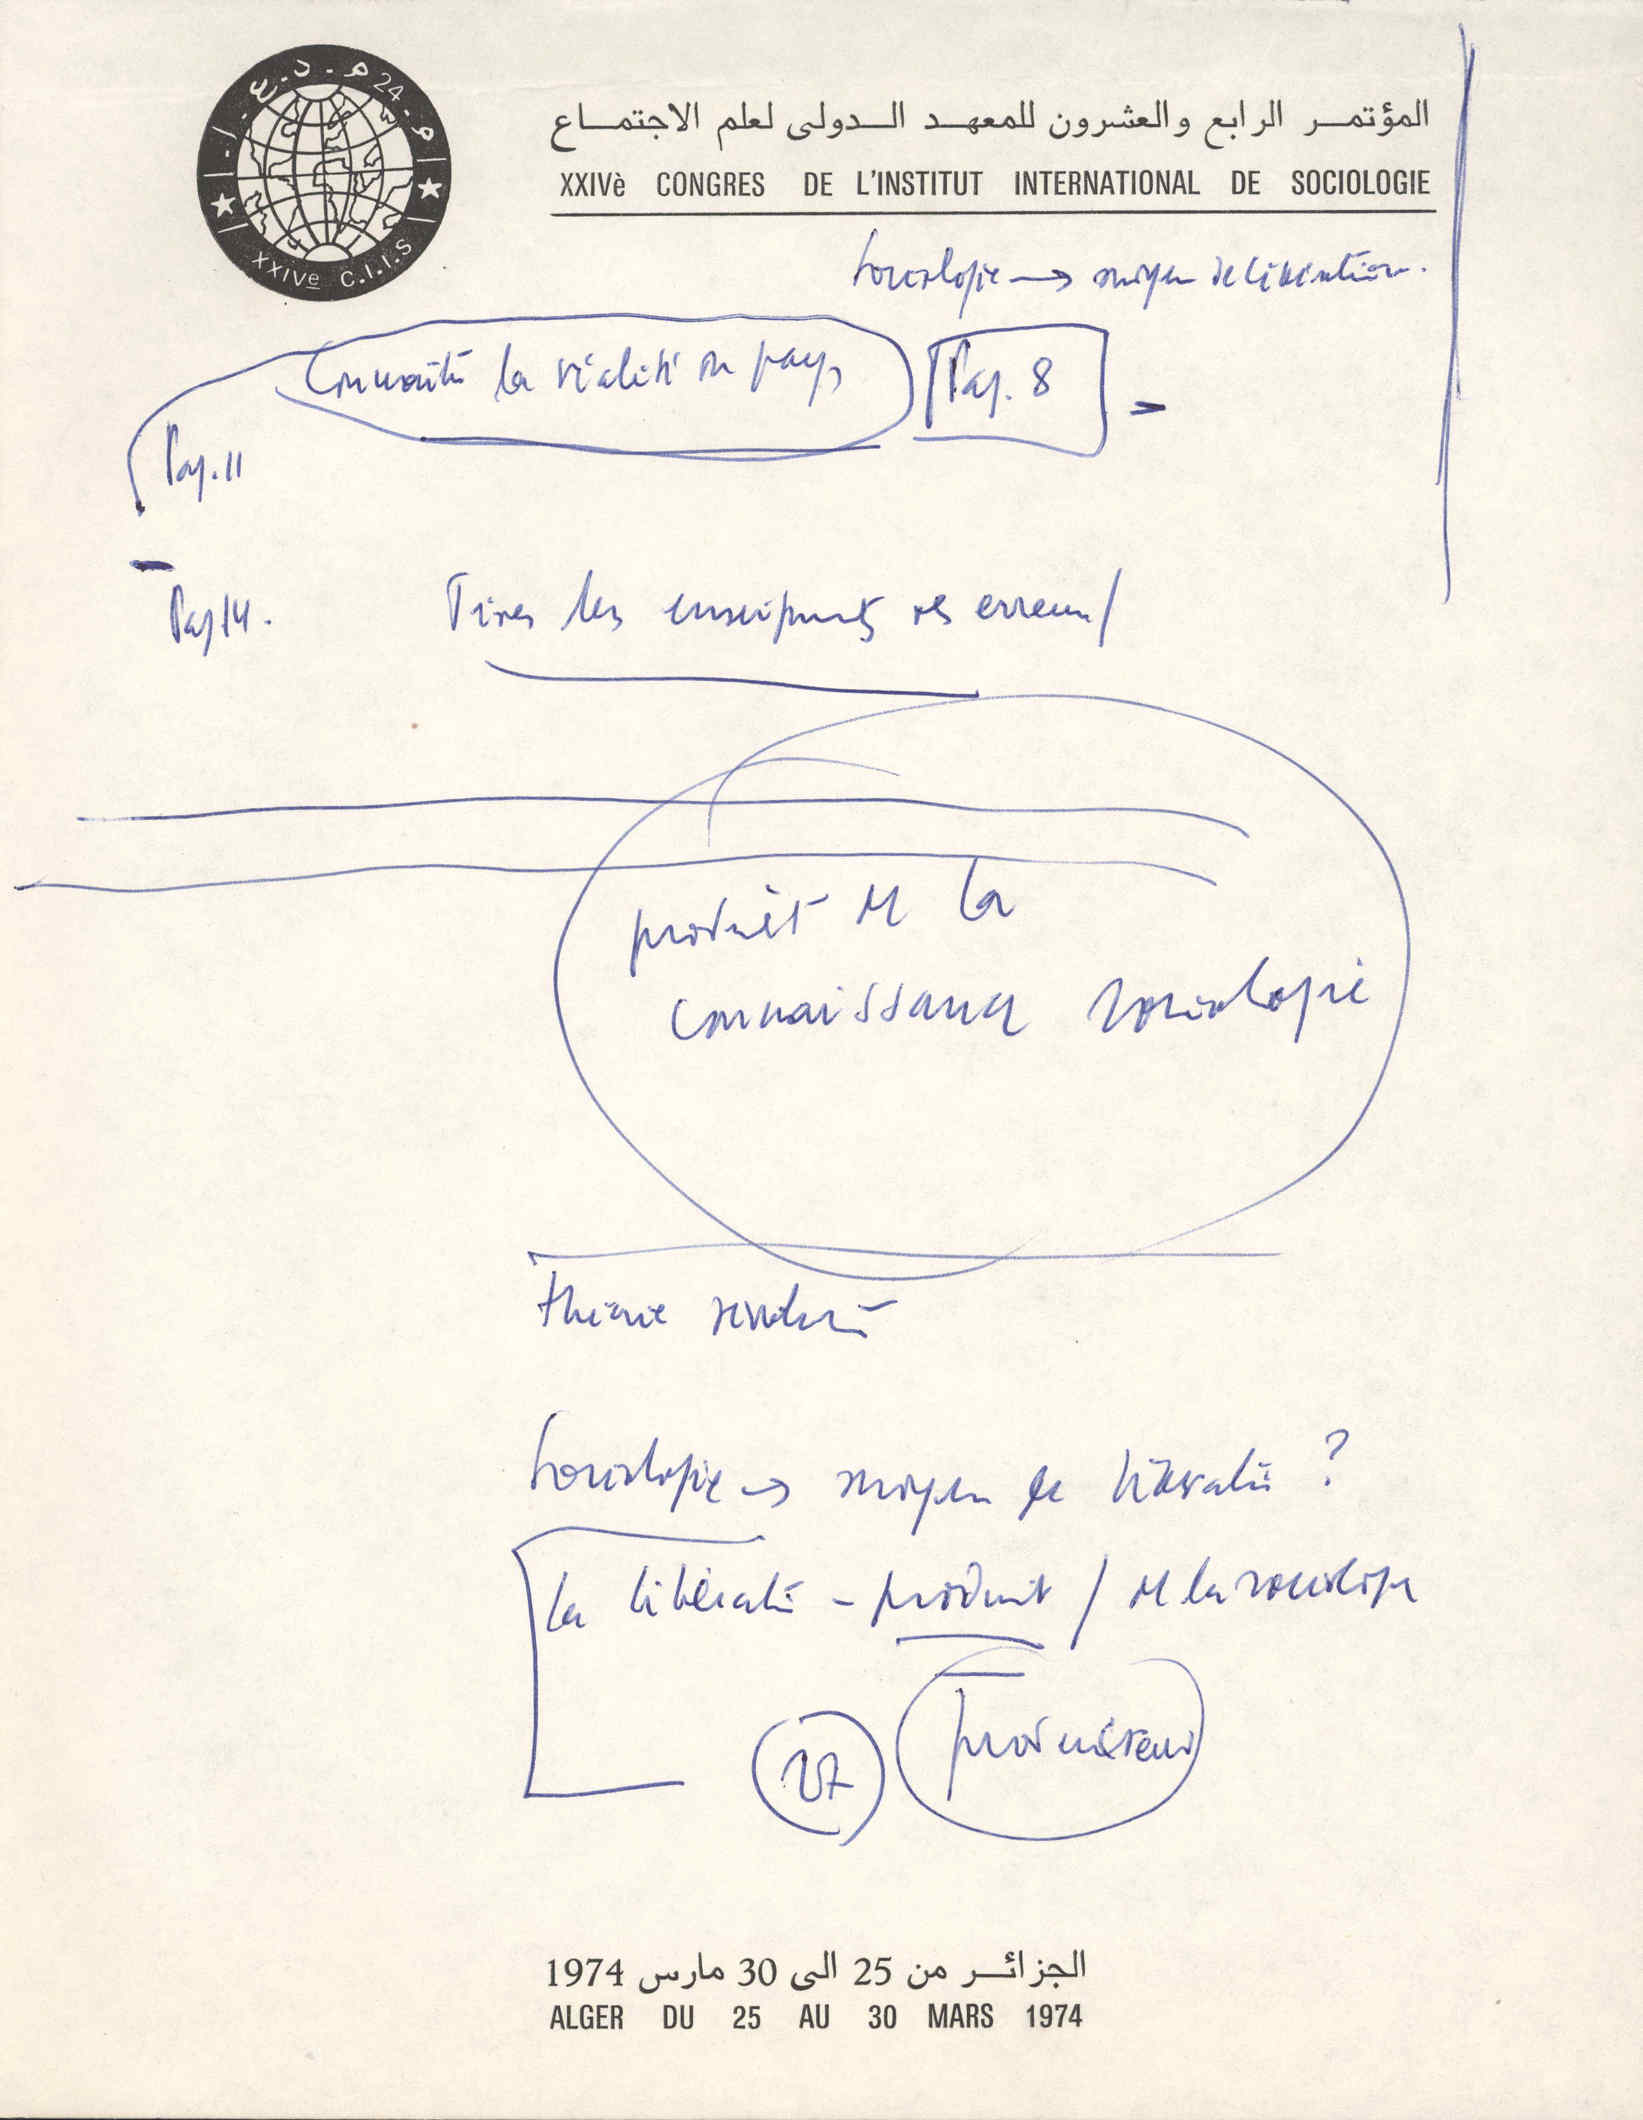 م.ا.ع.د.م 24
XXIVe C.I.I.S
المؤتمر الرابع والعشرون للمعهد الدولى لعلم الاجتماع
XXIVè CONGRES DE L'INSTITUT INTERNATIONAL DE SOCIOLOGIE
Sociologie → moyen de libération.
Connaître la réalité du pays
Pag. 8
Pag. 11
Pag 14.
Tirer les des erreurs/
produit de la
connaissance sociologie
théorie
Sociologie → moyen de libération ?
la libération - produit / de la sociologie
producteur
الجزائر من 25 الى 30 مارس 1974
ALGER DU 25 AU 30 MARS 1974